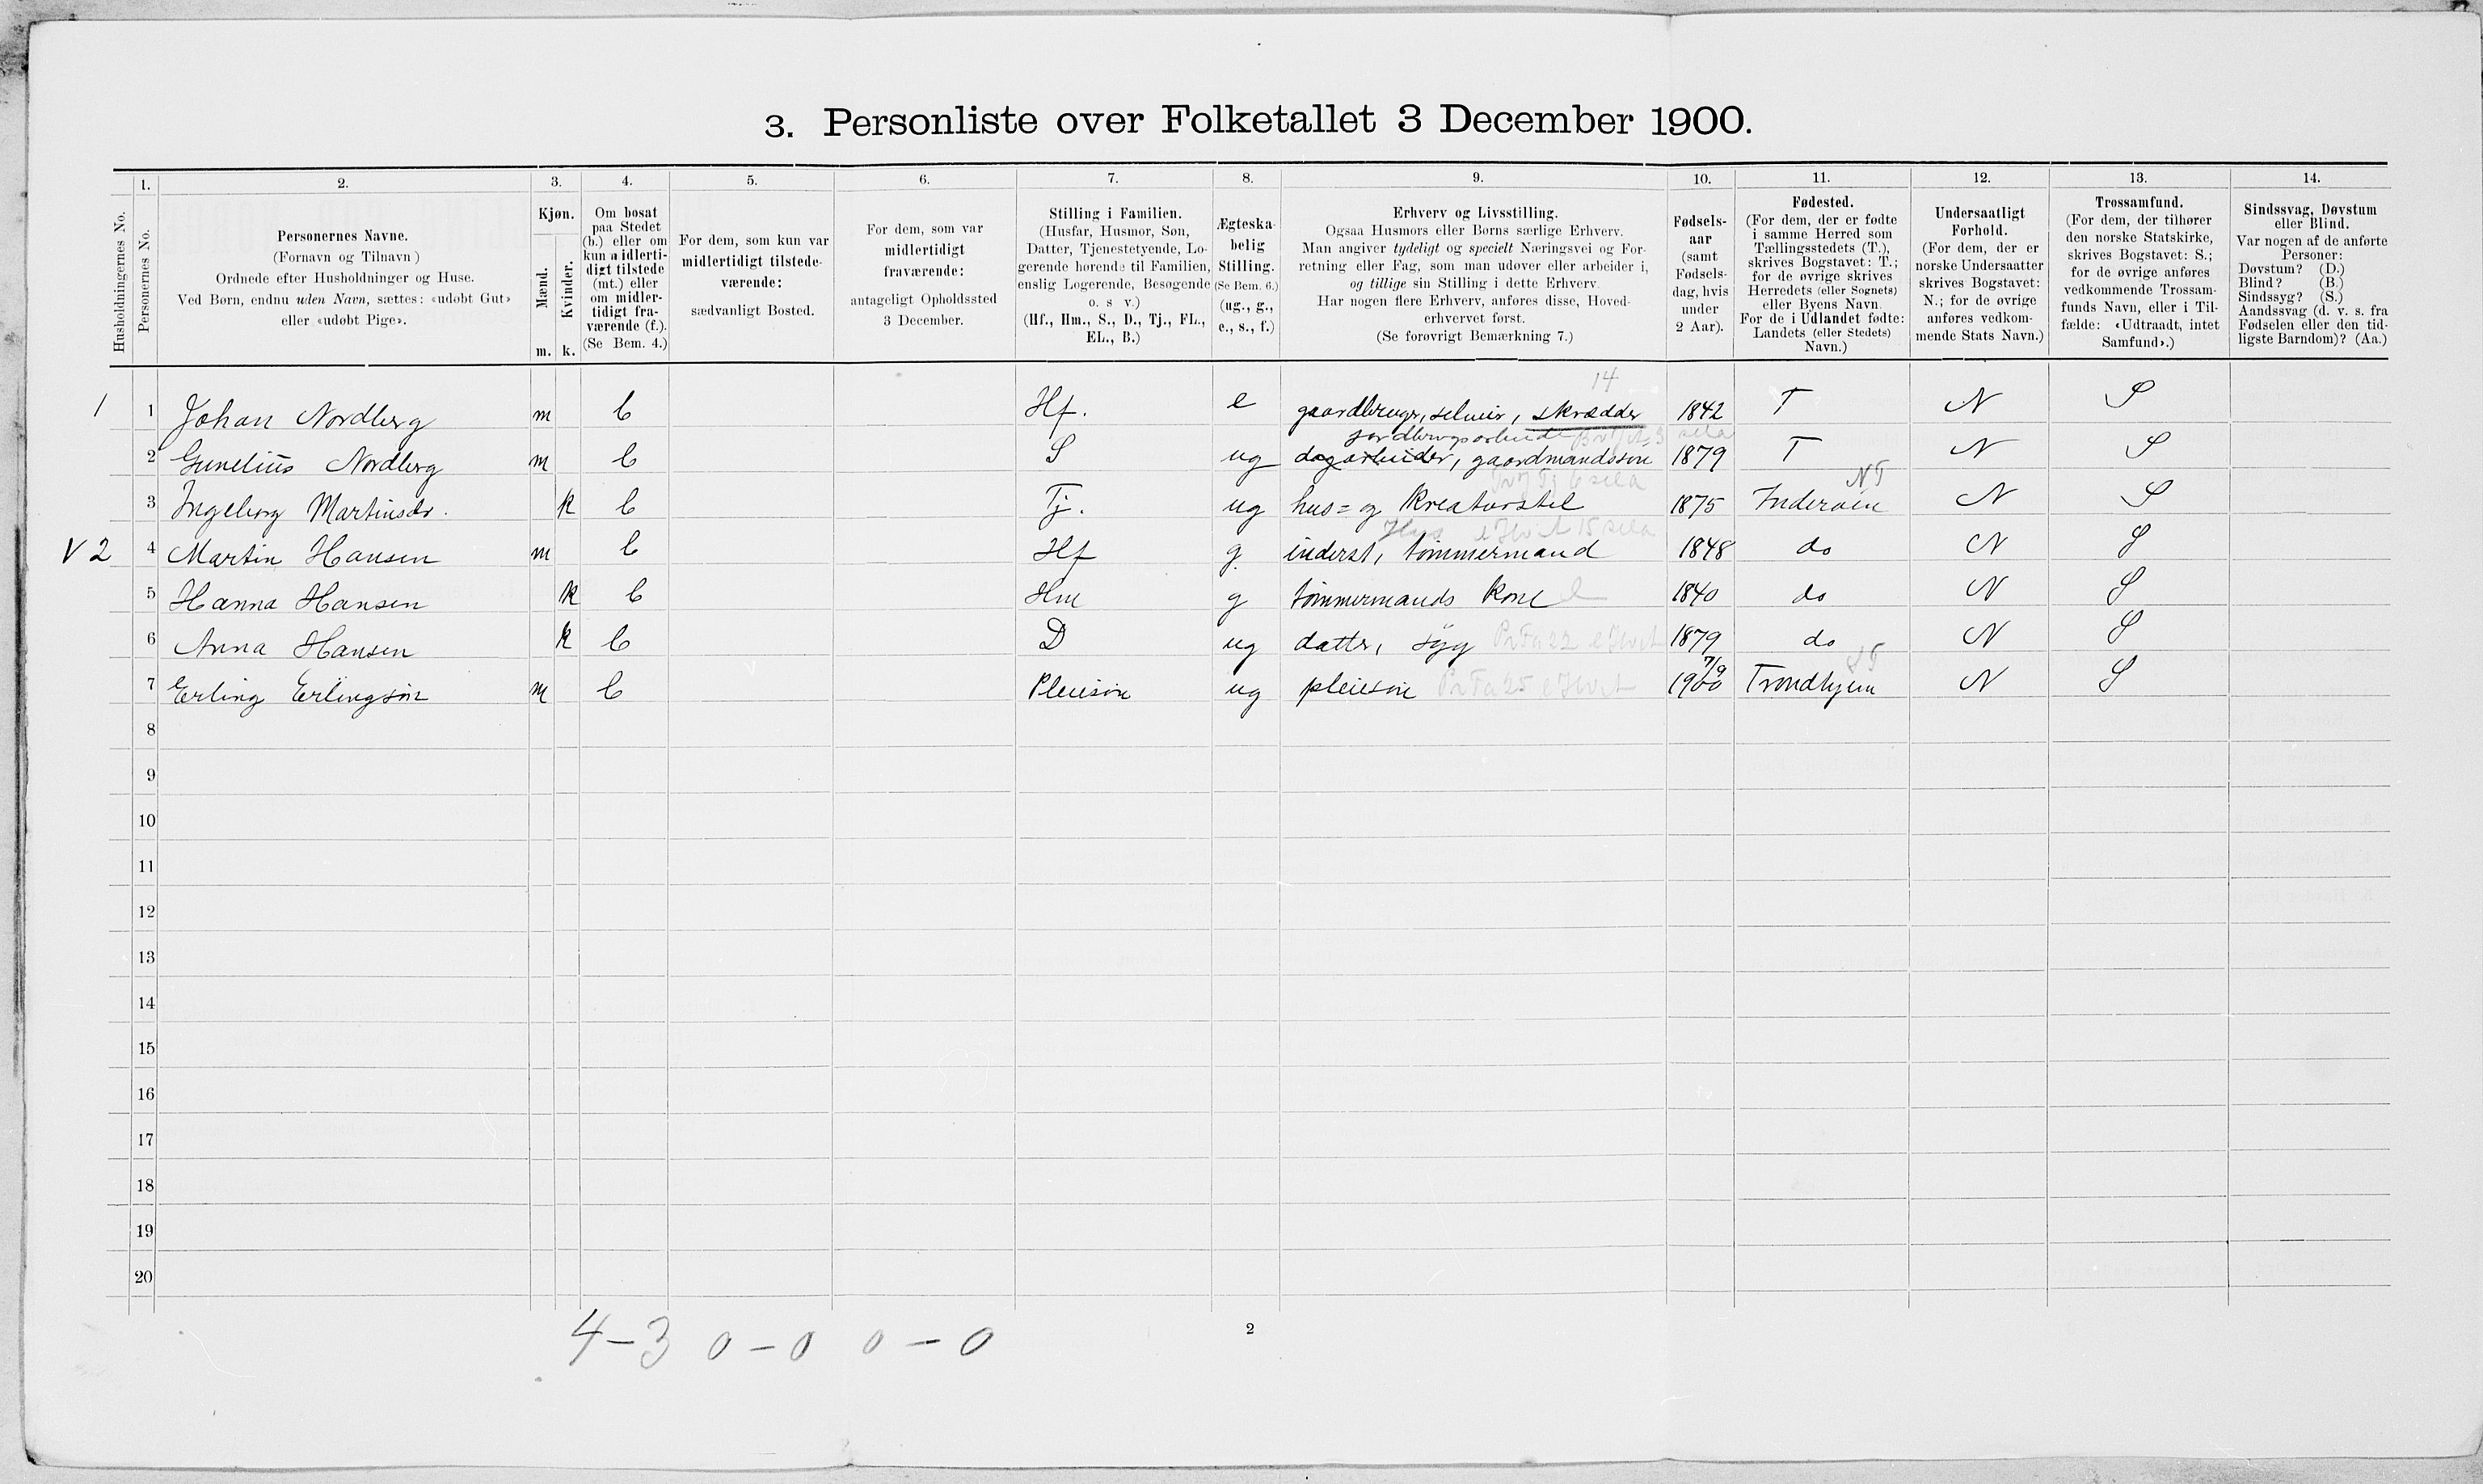 3. Personliste over Folketallet 3 December 1900.
1. 2. 3. 4. 5. 6. 7. 8. 9. 10. 11. 12. 13. 14.
Husholdningernes No.
Personernes No.
Personernes Navne.
(Fornavn og Tilnavn)
Ordnede efter Husholdninger og Huse.
Ved Børn, endnu uden Navn, sættes: «udøbt Gut»
eller «udøbt Pige».
Kjøn.
Mænd.
Kvinder.
m. k.
Om bosat
paa Stedet
(b.) eller om
kun midlerti-
digt tilstede
(mt.) eller
om midler-
tidigt fra-
værende (f.).
(Se Bem. 4.)
For dem, som kun var
midlertidigt tilstede-
værende:
sædvanligt Bosted.
For dem, som var
midlertidigt
fraværende:
antageligt Opholdssted
3 December.
Stilling i Familien.
(Husfar, Husmor, Søn,
Datter, Tjenestetyende, Lo-
gerende hørende til Familien,
enslig Logerende, Besøgende
o. s v.)
(Hf., Hm., S., D., Tj., FL.,
EL., B.)
Ægteska-
belig
Stilling.
(Se Bem. 6.)
(ug., g.,
e., s., f.)
Erhverv og Livsstilling.
Ogsaa Husmors eller Børns særlige Erhverv.
Man angiver tydeligt og specielt Næringsvei og For-
retning eller Fag, som man udøver eller arbeider i,
og tillige sin Stilling i dette Erhverv.
Har nogen flere Erhverv, anføres disse, Hoved-
erhvervet først.
(Se forøvrigt Bemærkning 7.)
Fødsels-
aar
(samt
Fødsels-
dag, hvis
under
2 Aar).
Fødested.
(For dem, der er fødte
i samme Herred som
Tællingsstedets (T.),
skrives Bogstavet: T.;
for de øvrige skrives
Herredets (eller Sognets)
eller Byens Navn.
For de i Udlandet fødte:
Landets (eller Stedets)
Navn.)
Undersaatligt
Forhold.
(For dem, der er
norske Undersaatter
skrives Bogstavet:
N.; for de øvrige
anføres vedkom-
mende Stats Navn.)
Trossamfund.
(For dem, der tilhører
den norske Statskirke,
skrives Bogstavet: S.;
for de øvrige anføres
vedkommende Trossam-
funds Navn, eller i Til-
fælde: «Udtraadt, intet
Samfund».)
Sindssvag, Døvstum
eller Blind.
Var nogen af de anførte
Personer:
Døvstum? (D.)
Blind? (B.)
Sindssyg? (S.)
Aandssvag (d. v. s. fra
Fødselen eller den tid-
ligste Barndom)? (Aa.)
14
1 1 Johan Nordberg m b Hf. e gaardbruger, selveier, skrædder 1842 T N S
jordbrugsarbeide
2 Gunelius Nordberg m b S ug dagarbeider, gaardmandssøn 1879 T N S
NT
3 Ingeborg Martinsdr. k b Tj. ug hus= og kreaturstel 1875 Inderøen N S
V 2 4 Martin Hansen m b Hf g. inderst, tømmermand 1848 do N S
5 Hanna Hansen k b Hm g tømmermands kone 1840 do N S
6 Anna Hansen k b D ug datter, syg 1879 do N S
7/9 ST
7 Erling Erlingsøn m b Pleiesøn ug pleiesøn 1900 Trondhjem N S
8
9
10
11
12
13
14
15
16
17
18
19
20
4-3 0-0 0-0
2